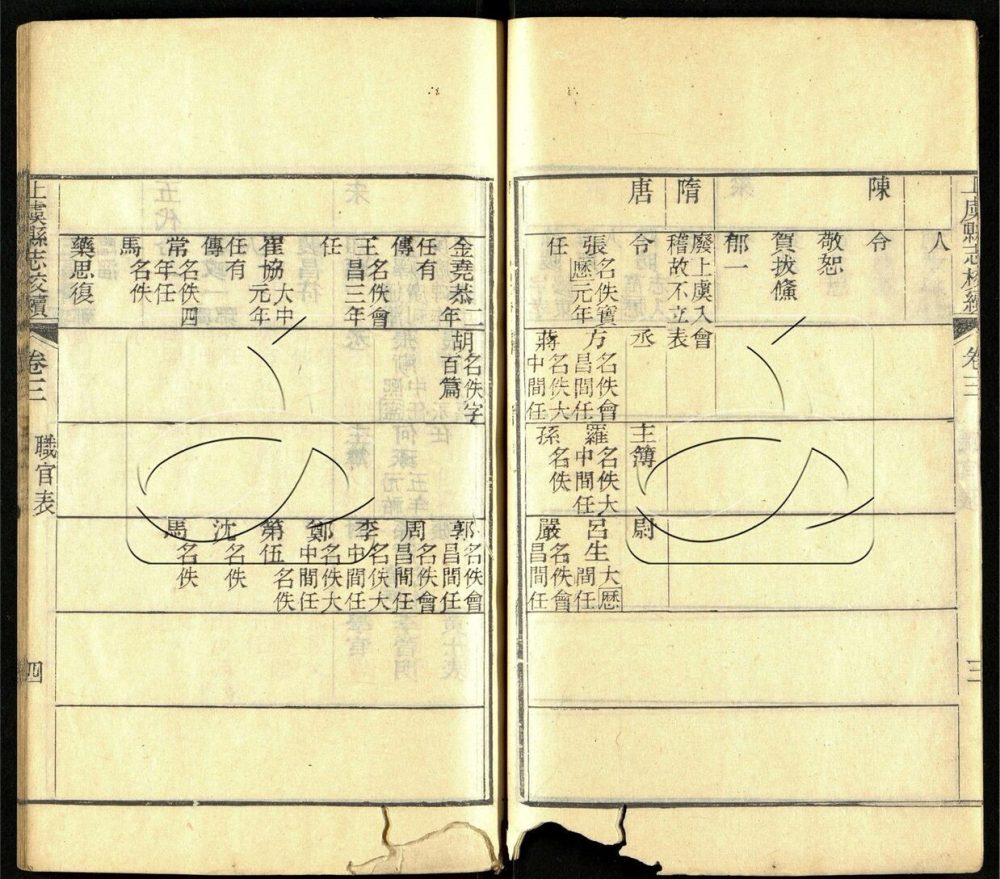 上虞縣志校續 卷三 三
人
陳
令
敬恕
賀拔
郁一
隋
廢上虞入會
稽故不立表
唐
令
丞
主簿
尉
張名佚寶
曆元年
任
方名佚會
昌間任
蔣名佚大
中間任
羅名佚大
中間任
孫名佚
呂生大曆
間任
嚴名佚會
昌間任
金堯恭二年
任有
傳
王名佚會
昌三年
任
崔協大中
元年
任有
傳
常名佚四
年任
馬名佚
藥思復
胡名佚字
百篇
郭名佚會
昌間任
周名佚會
昌間任
李名佚大
中間任
鄭名佚大
中間任
第伍名佚
沈名佚
馬名佚
上虞縣志校續 卷三 職官表 四